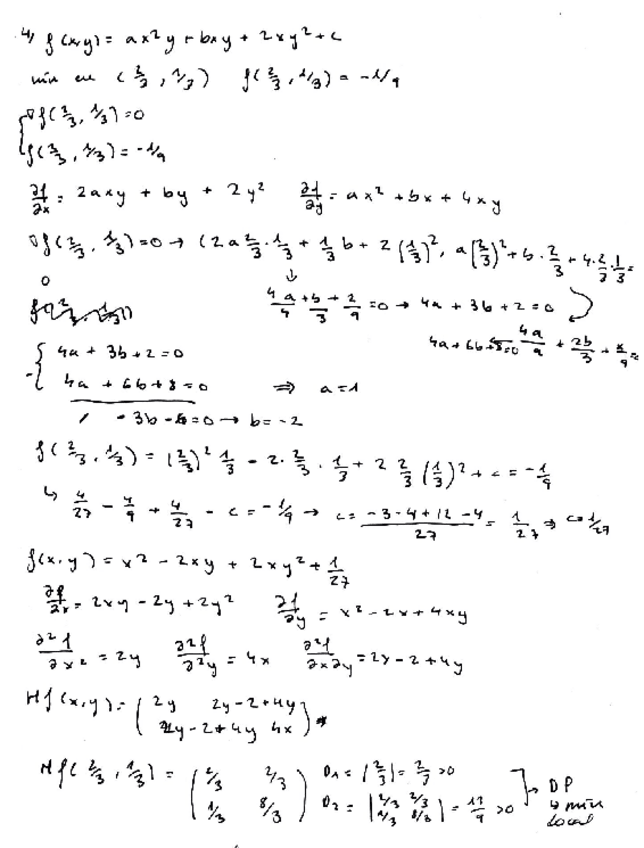 4) f(x,y) = ax²y + bxy + 2xy² + c
min en (2/3, 1/3) f(2/3, 1/3) = -1/9
{ ∇f(2/3, 1/3) = 0
f(2/3, 1/3) = -1/9
∂f/∂x = 2axy + by + 2y² ∂f/∂y = ax² + bx + 4xy
∇f(2/3, 1/3) = 0 → (2a 2/3 · 1/3 + 1/3 b + 2(1/3)², a(2/3)² + b · 2/3 + 4 · 2/3 · 1/3 =
0 ↓
4a/4 + b/3 + 2/9 = 0 → 4a + 3b + 2 = 0
4a + 6b + 8 = 0 ← 4a/a + 2b/3 + 8/9 =
- { 4a + 3b + 2 = 0
4a + 6b + 8 = 0 ⇒ a = 1
/ - 3b - 6 = 0 → b = -2
f(2/3, 1/3) = (2/3)² 1/3 - 2 · 2/3 · 1/3 + 2 2/3 (1/3)² + c = -1/9
↳ 4/27 - 4/9 + 4/27 - c = -1/9 → c = (-3 - 4 + 12 - 4)/27 = 1/27 ⇒ c = 1/27
f(x,y) = x² - 2xy + 2xy² + 1/27
∂f/∂x = 2xy - 2y + 2y² ∂f/∂y = x² - 2x + 4xy
∂²f/∂x² = 2y ∂²f/∂²y = 4x ∂²f/∂x∂y = 2x - 2 + 4y
Hf(x,y) = ( 2y 2y - 2 + 4y
2y - 2 + 4y 4x )
Hf(2/3, 1/3) = ( 2/3 2/3 D1 = |2/3| = 2/3 > 0 ] → DP
1/3 8/3 ) D2 = |2/3 2/3 1/3 8/3| = 12/9 > 0 ↳ min
local